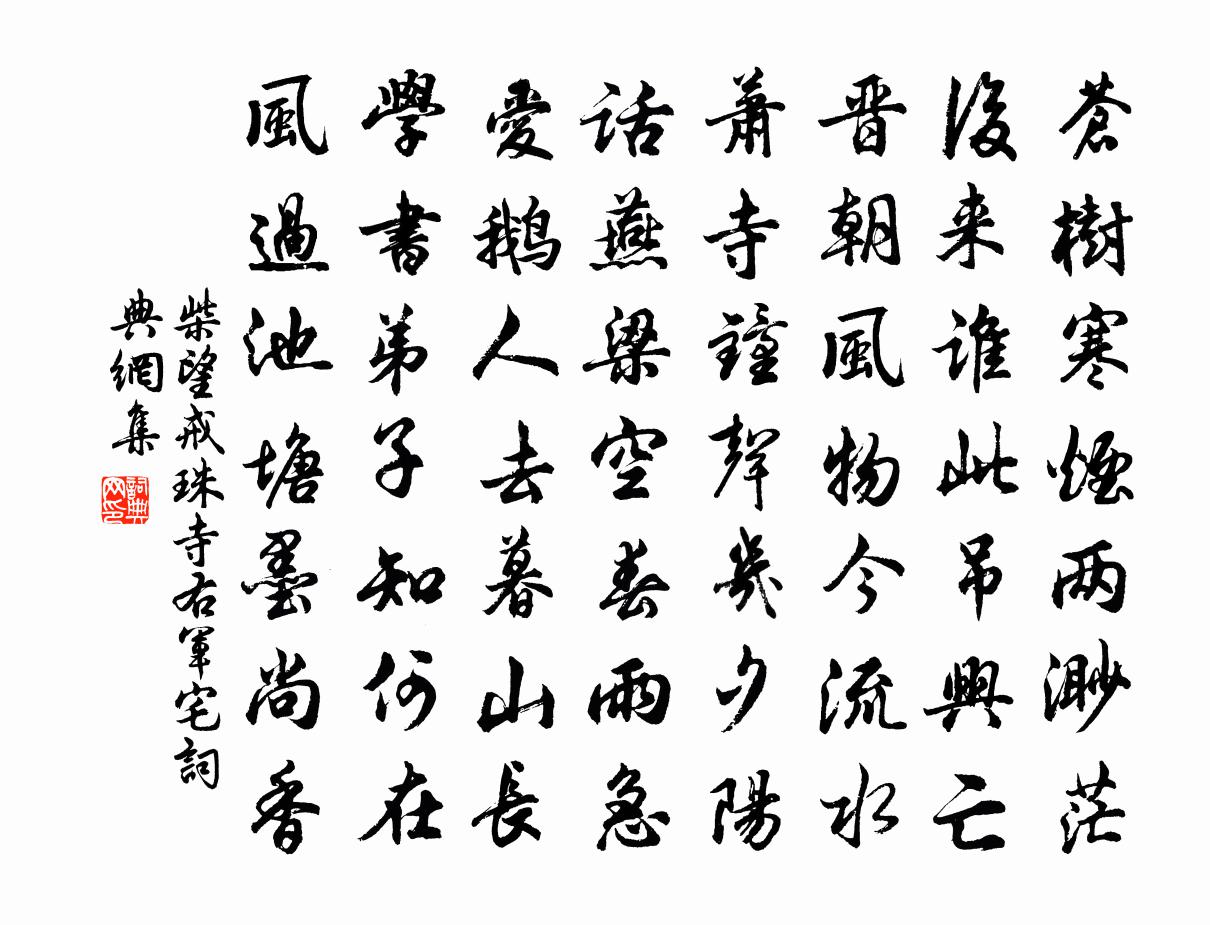 蒼樹寒煙两渺茫
後来誰此吊興亡
晋朝風物今流水
蕭寺鐘聲幾夕陽
話燕梁空春雨急
愛鵝人去暮山長
學書弟子知何在
風過池塘墨尚香
柴望戒珠寺右軍宅詞
典網集
詞典网印